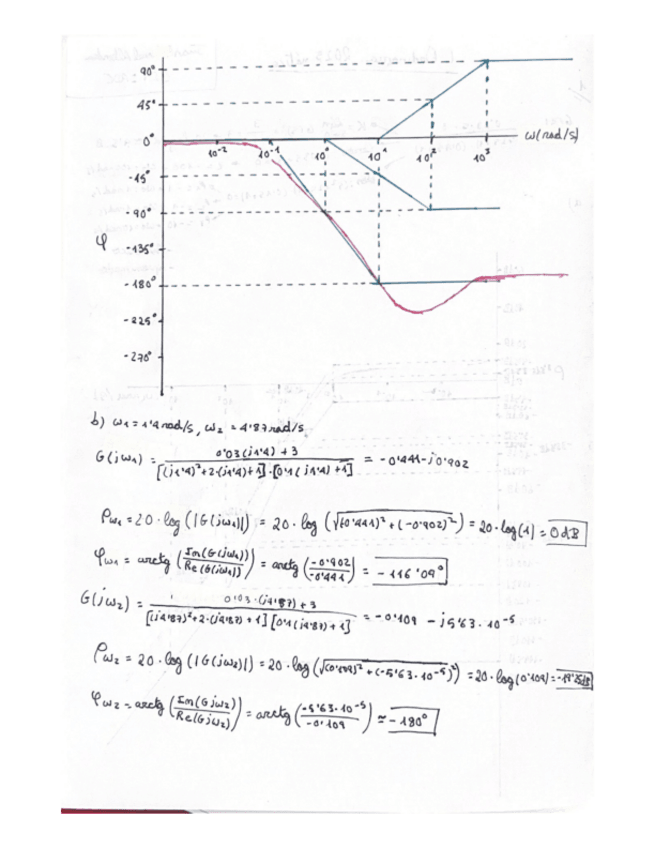 90°
45°
0°
10⁻² 10⁻¹ 10⁰ 10¹ 10² 10³ ω(rad/s)
-45°
-90°
φ
-135°
-180°
-225°
-270°
b) ω1 = 1'4 rad/s, ω2 = 4'87 rad/s
G(jω1) = 0'03(j1'4) + 3 / [(j1'4)²+2·(j1'4)+1]·[0'1(j1'4)+1] = -0'441-j0'902
ρω1 = 20·log(|G(jω1)|) = 20·log(√((0'441)²+(-0'902)²)) = 20·log(1) = 0dB
φω1 = arctg(Im(G(jω1))/Re(G(jω1))) = arctg(-0'902/-0'441) = -116'09°
G(jω2) = 0'03·(j4'87)+3 / [(j4'87)²+2·(j4'87)+1][0'1(j4'87)+1] = -0'109 - j5'63·10⁻⁵
ρω2 = 20·log(|G(jω2)|) = 20·log(√((0'109)²+(-5'63·10⁻⁵)²)) = 20·log(0'109) = -19'25dB
φω2 = arctg(Im(Gjω2)/Re(Gjω2)) = arctg(-5'63·10⁻⁵/-0'109) ≃ -180°